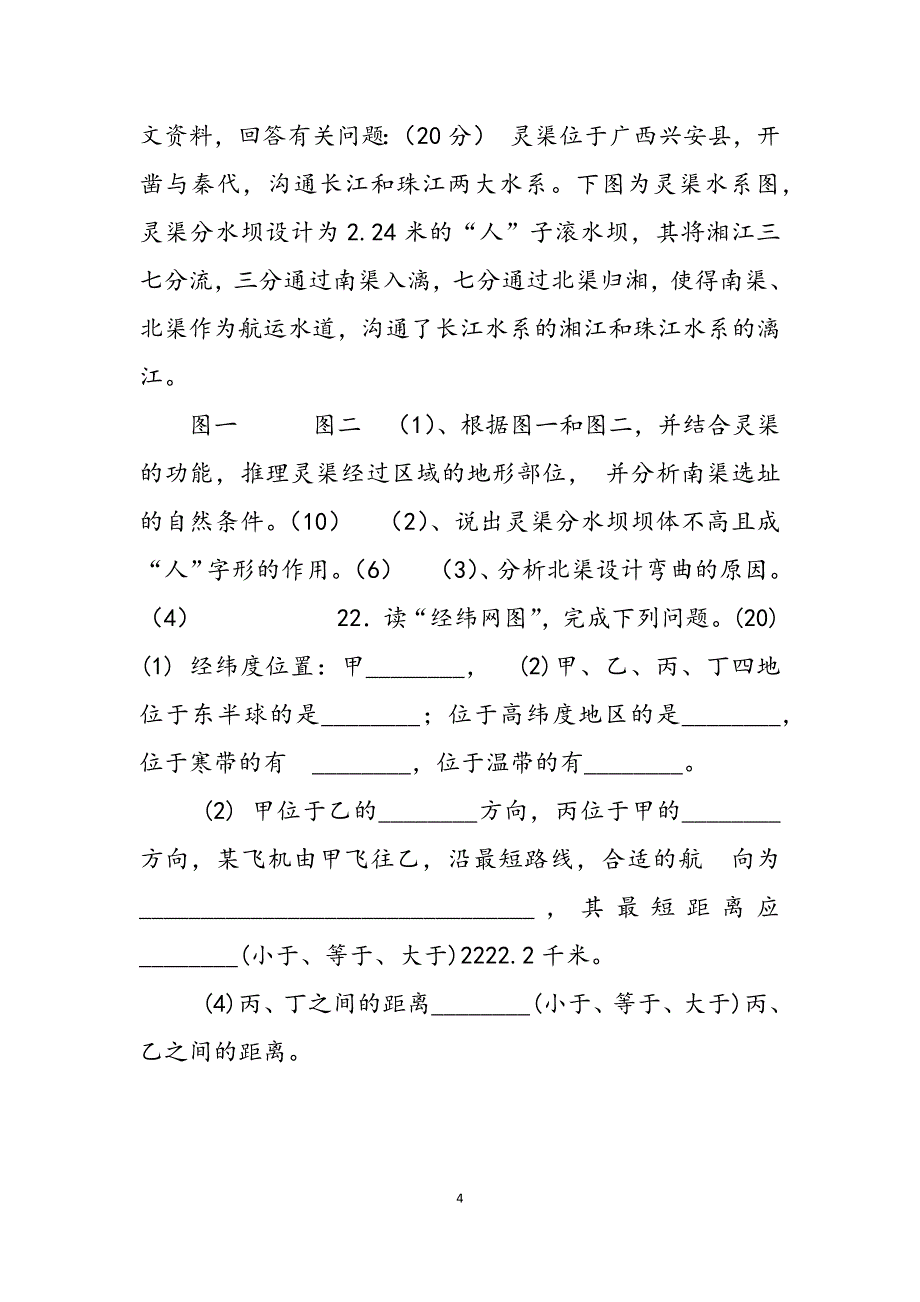 文资料，回答有关问题:（20分） 灵渠位于广西兴安县，开
凿与秦代，沟通长江和珠江两大水系。下图为灵渠水系图，
灵渠分水坝设计为2.24米的“人”子滚水坝，其将湘江三
七分流，三分通过南渠入漓，七分通过北渠归湘，使得南渠、
北渠作为航运水道，沟通了长江水系的湘江和珠江水系的漓
江。
图一 图二 （1）、根据图一和图二，并结合灵渠
的功能，推理灵渠经过区域的地形部位， 并分析南渠选址
的自然条件。（10） （2）、说出灵渠分水坝坝体不高且成
“人”字形的作用。（6） （3）、分析北渠设计弯曲的原因。
（4） 22．读“经纬网图”，完成下列问题。(20)
(1) 经纬度位置：甲________， (2)甲、乙、丙、丁四地
位于东半球的是________；位于高纬度地区的是________，
位于寒带的有 ________，位于温带的有________。
(2) 甲位于乙的________方向，丙位于甲的________
方向，某飞机由甲飞往乙，沿最短路线，合适的航 向为
________________________________，其最短距离应
________(小于、等于、大于)2222.2千米。
(4)丙、丁之间的距离________(小于、等于、大于)丙、
乙之间的距离。
4